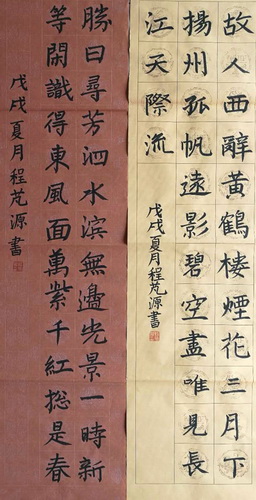 故人西辭黃鶴樓煙花三月下
揚州孤帆遠影碧空盡唯見長
江天際流
戊戌夏月程芃源書
勝日尋芳泗水滨無邊光景一時新
等閑識得東風面萬紫千紅総是春
戊戌夏月程芃源書